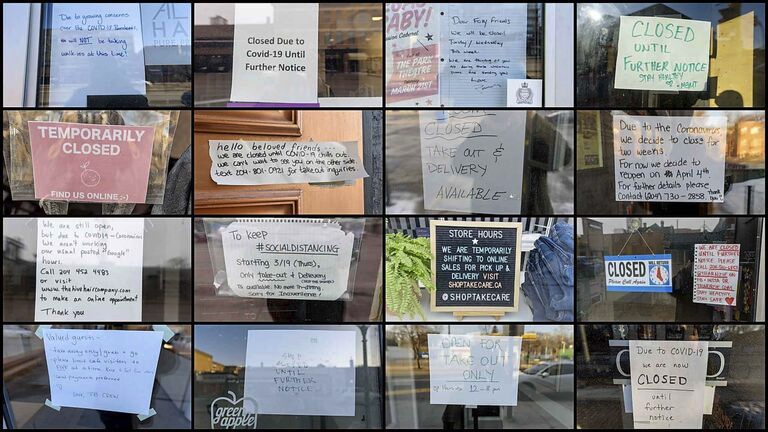 Due to growing concerns
over the COVID-19 Pandemic,
we will NOT be taking
walk-ins at this time!
Closed Due to
Covid-19 Until
Further Notice
BABY!
THE PARK
THEATRE
MARCH 21ST
Dear Foxy Friends
We will be closed
Tuesday / Wednesday
this week
CLOSED
UNTIL
FURTHER NOTICE
STAY HEALTHY
TEMPORARILY
CLOSED
FIND US ONLINE :-)
hello beloved friends...
we are closed until COVID-19 chills out.
we can't wait to see you on the other side.
text 204-801-0921 for takeout inquiries.
CLOSED
TAKE OUT &
DELIVERY
AVAILABLE
Due to the Coronavirus
we decide to close for
two weeks.
For now we decide to
reopen on April 4th
For further details please
contact (204) 730-2858.
Thank you
We are still open,
but due to COVID19-Coronavirus
We aren't working
our usual posted "Google"
hours.
Call 204 452 4483
or visit
www.thehivehaircompany.com
to make an online appointment
Thank you
To keep
#SOCIALDISTANCING
Starting 3/19 (Thurs),
Only take-out & Delivery
is available. No more Dine-in
Sorry for Inconvenience!
STORE HOURS
WE ARE TEMPORARILY
SHIFTING TO ONLINE
SALES FOR PICK UP &
DELIVERY VISIT
SHOPTAKECARE.CA
@SHOPTAKECARE
CLOSED
Please Call Again
WE ARE CLOSED
UNTIL FURTHER
NOTICE PLEASE
STAY HEALTHY
STAY SAFE
Valued guests-
UNTIL
FURTHER
NOTICE
green
apple
OPEN FOR
TAKE OUT
ONLY
12-8pm
Due to COVID-19
we are now
CLOSED
until
further
notice